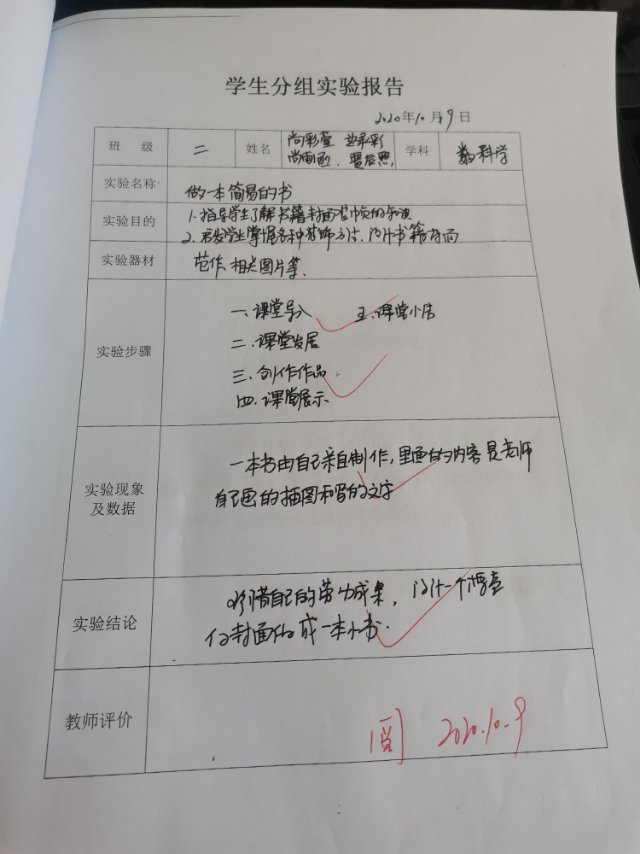 学生分组实验报告
2020年10月9日
班 级 二 姓名 尚彩萱 尚雨函 学科 数科学
实验名称 做一本简易的书
实验目的 1.指导学生了解书籍封面设计的知识
2.启发学生掌握各种装饰方法,设计书籍封面
实验器材 范作、相关图片等.
实验步骤
一.课堂导入 五.课堂小结
二.课堂发展
三.创作作品.
四.课堂展示
实验现象及数据
一本书由自己亲自制作,里面的内容是老师
自己画的插图和写的文字
实验结论
珍惜自己的劳动成果,设计一个
封面做成一本小书.
教师评价
阅 2020.10.9